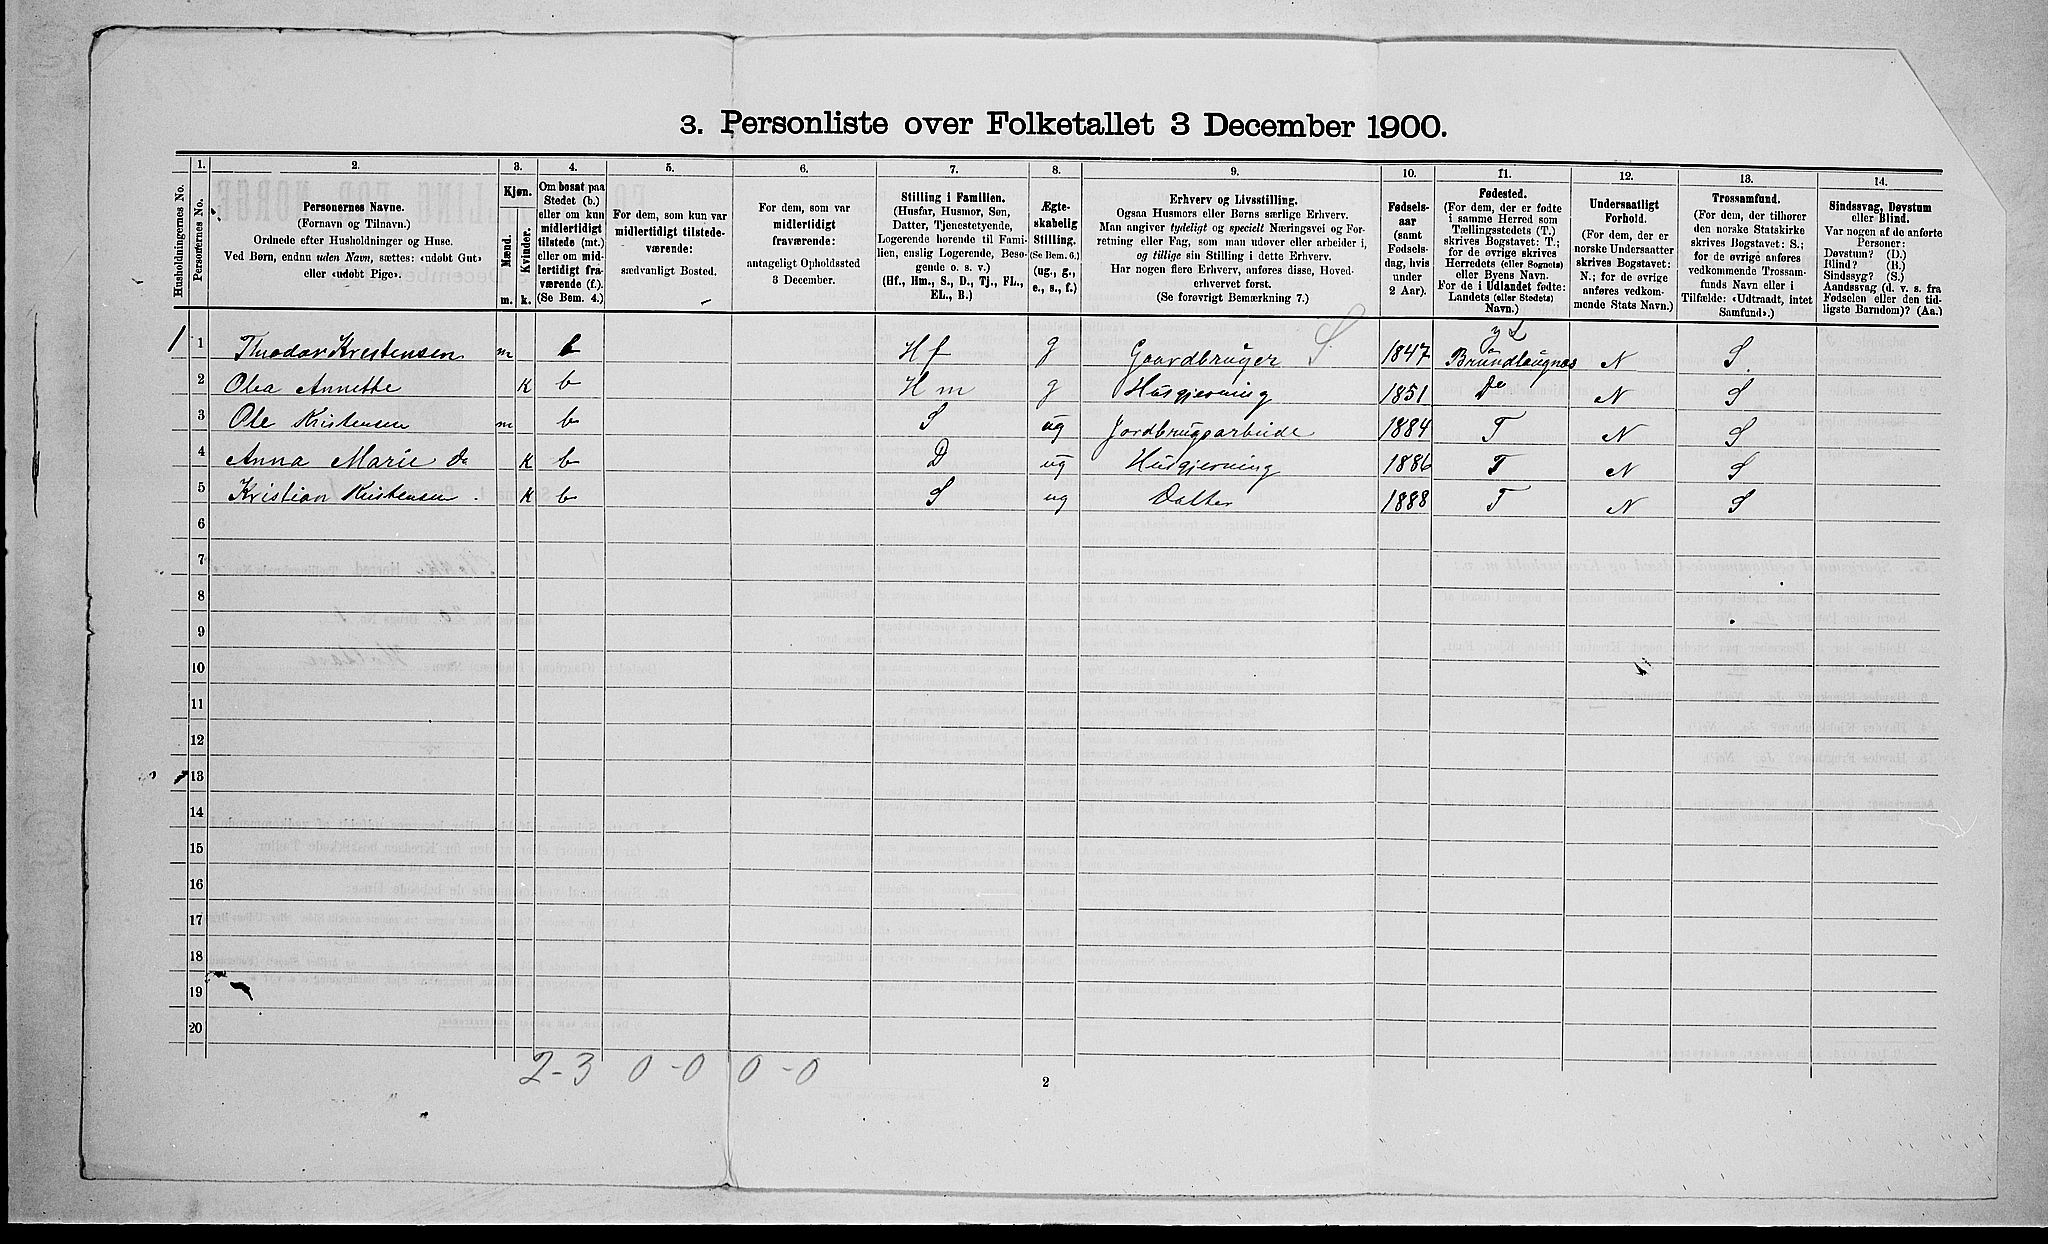 3. Personliste over Folketallet 3 December 1900.
1. 2. 3. 4. 5. 6. 7. 8. 9. 10. 11. 12. 13. 14.
Husholdningernes No.
Personernes No.
Personernes Navne.
(Fornavn og Tilnavn.)
Ordnede efter Husholdninger og Huse.
Ved Børn, endnu uden Navn, sættes: «udøbt Gut»
eller «udøbt Pige».
Kjøn.
Mænd.
Kvinder.
m. k.
Om bosat paa
Stedet (b.)
eller om kun
midlertidigt
tilstede (mt.)
eller om mid-
lertidigt fra-
værende (f.).
(Se Bem. 4.)
For dem, som kun var
midlertidigt tilstede-
værende:
sædvanligt Bosted.
For dem, som var
midlertidigt
fraværende:
antageligt Opholdssted
3 December.
Stilling i Familien.
(Husfar, Husmor, Søn,
Datter, Tjenestetyende,
Logerende hørende til Fami-
lien, enslig Logerende, Besø-
gende o. s. v.)
(Hf., Hm., S., D., Tj., FL.,
EL., B.)
Ægte-
skabelig
Stilling.
(Se Bem. 6.)
(ug., g.,
e., s., f.)
Erhverv og Livsstilling.
Ogsaa Husmors eller Børns særlige Erhverv.
Man angiver tydeligt og specielt Næringsvei og For-
retning eller Fag, som man udøver eller arbeider i,
og tillige sin Stilling i dette Erhverv.
Har nogen flere Erhverv, anføres disse, Hoved-
erhvervet først.
(Se forøvrigt Bemærkning 7.)
Fødsels-
aar
(samt
Fødsels-
dag, hvis
under
2 Aar).
Fødested.
(For dem, der er fødte
i samme Herred som
Tællingsstedets (T.)
skrives Bogstavet: T.;
for de øvrige skrives
Herredets (eller Sognets)
eller Byens Navn.
For de i Udlandet fødte:
Landets (eller Stedets)
Navn.)
Undersaatligt
Forhold.
(For dem, der er
norske Undersaatter
skrives Bogstavet:
N.; for de øvrige
anføres vedkom-
mende Stats Navn.)
Trossamfund.
(For dem, der tilhører
den norske Statskirke
skrives Bogstavet: S.;
for de øvrige anføres
vedkommende Trossam-
funds Navn eller i
Tilfælde: «Udtraadt, intet
Samfund».)
Sindssvag, Døvstum
eller Blind.
Var nogen af de anførte
Personer:
Døvstum? (D.)
Blind? (B.)
Sindssyg? (S.)
Aandssvag (d. v. s. fra
Fødselen eller den tid-
ligste Barndom)? (Aa.)
1 1 Thodor Kristensen m b Hf g Gaardbruger S. 1847 Brundlaugnæs N S.
2 Olea Annette K b Hm g Husgjerning 1851 Do N S
3 Ole Kristensen m b S ug Jordbrugsarbeide 1884 T N S
4 Anna Marie do K b D ug Husgjerning 1886 T N S
5 Kristian Kristensen K b S ug Datter 1888 T N S
6
7
8
9
10
11
12
13
14
15
16
17
18
19
20
2-3 0-0 0-0
2